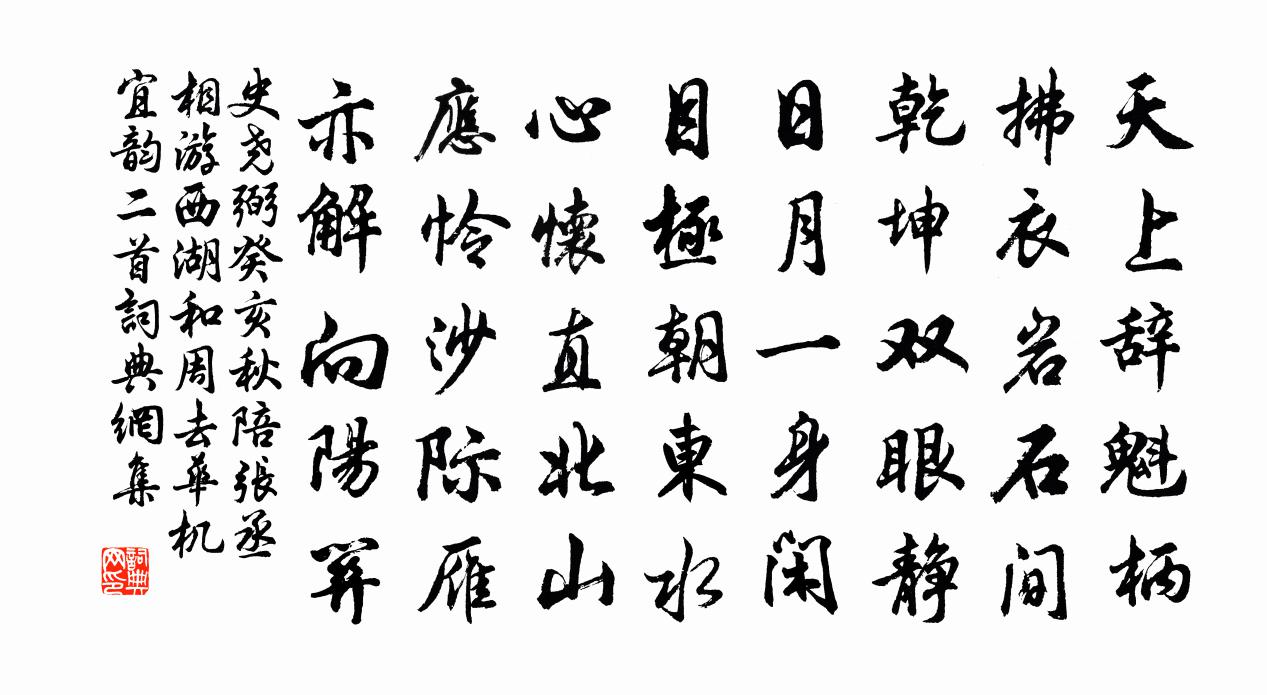 天上辞魁柄
拂衣岩石间
乾坤双眼静
日月一身闲
目极朝东水
心怀直北山
應怜沙际雁
亦解向陽關
史尧弼癸亥秋陪张丞
相游西湖和周去華机
宜韵二首詞典網集
詞典网印